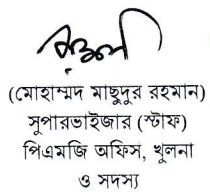 (মোহাম্মদ মাছুদুর রহমান)
সুপারভাইজার (স্টাফ)
পিএমজি অফিস, খুলনা
ও সদস্য